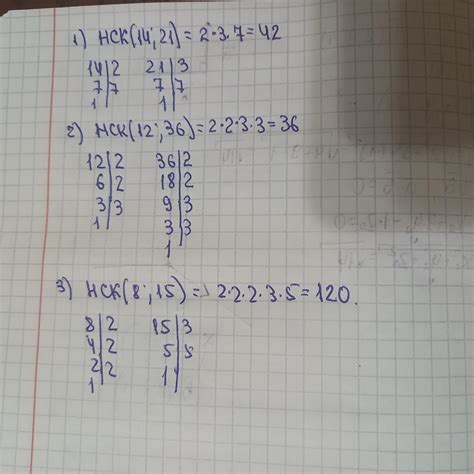 1) НСК(14,21)=2·3·7=42
14|2 21|3
7|7 7|7
1| 1|
2) НСК(12;36)=2·2·3·3=36
12|2 36|2
6|2 18|2
3|3 9|3
1| 3|3
1
3) НСК(8;15)= 2·2·2·3·5=120.
8|2 15|3
4|2 5|5
2|2 1|
1